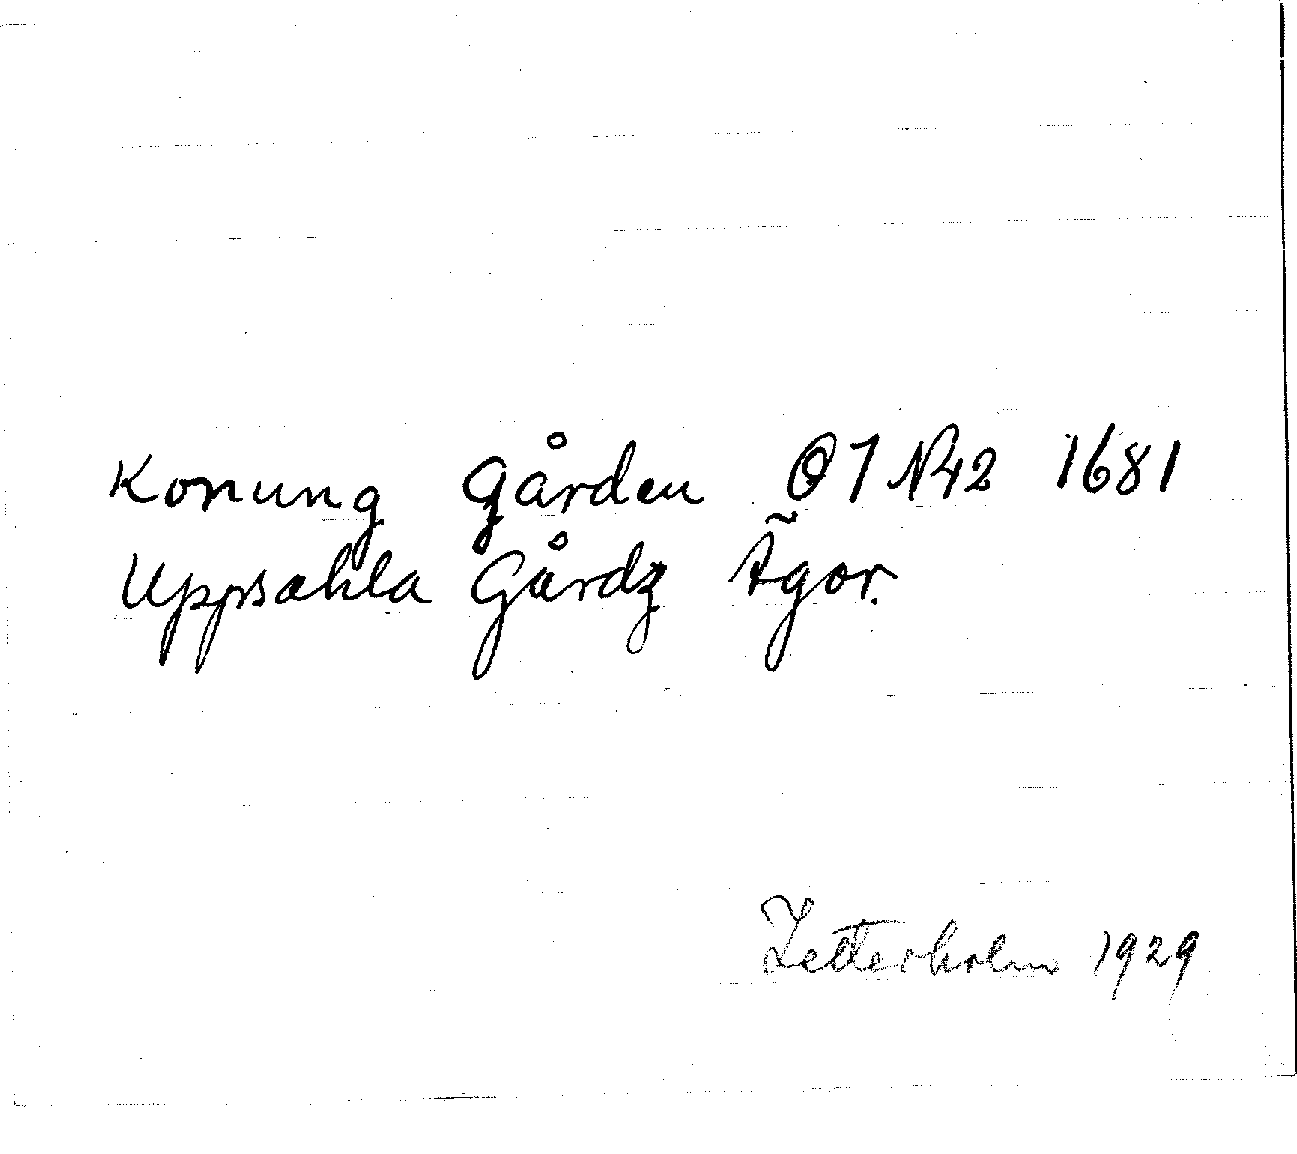 Konung Gården O7 N42 1681
Uppsahla Gårdz Ägor.
Zetterholm 1929